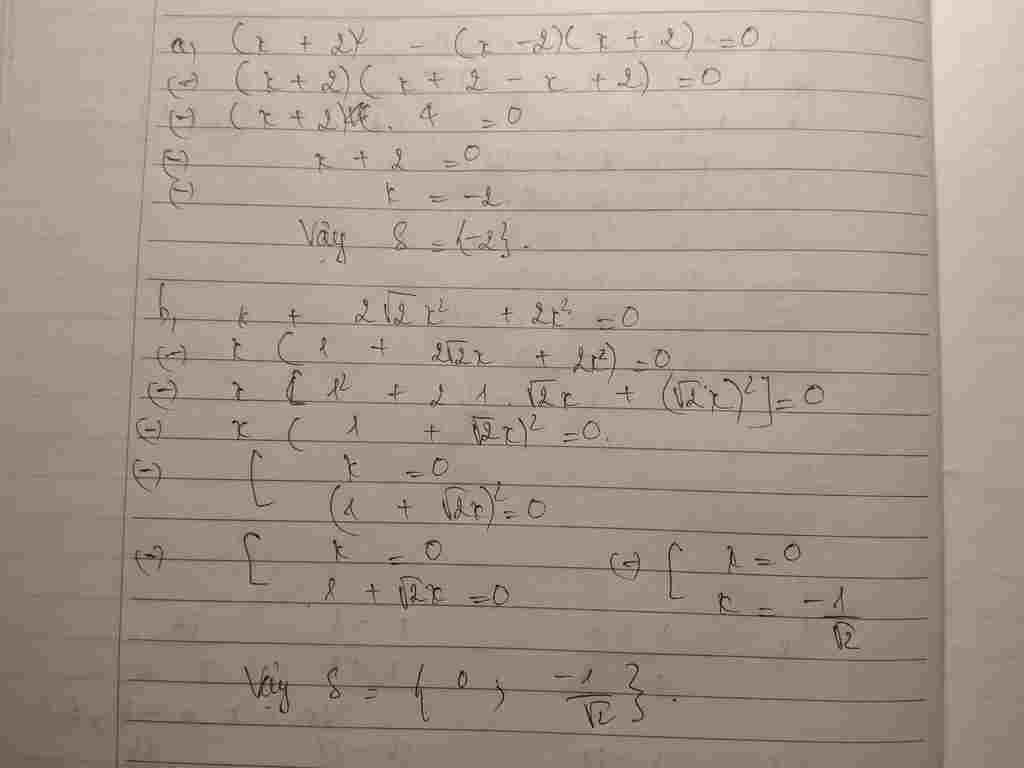 a, (x + 2)² - (x - 2)(x + 2) = 0
(=) (x + 2)(x + 2 - x + 2) = 0
(=) (x + 2) . 4 = 0
(=) x + 2 = 0
(=) x = -2
Vậy S = {-2}.
b, x + 2√2x² + 2x³ = 0
(=) x (1 + 2√2x + 2x²) = 0
(=) x [1² + 2 1. √2x + (√2x)²] = 0
(=) x (1 + √2x)² = 0.
(=) [ x = 0
(1 + √2x)² = 0
(=) [ x = 0 (=) [ x = 0
1 + √2x = 0 x = -1/√2
Vậy S = { 0 ; -1/√2 }.